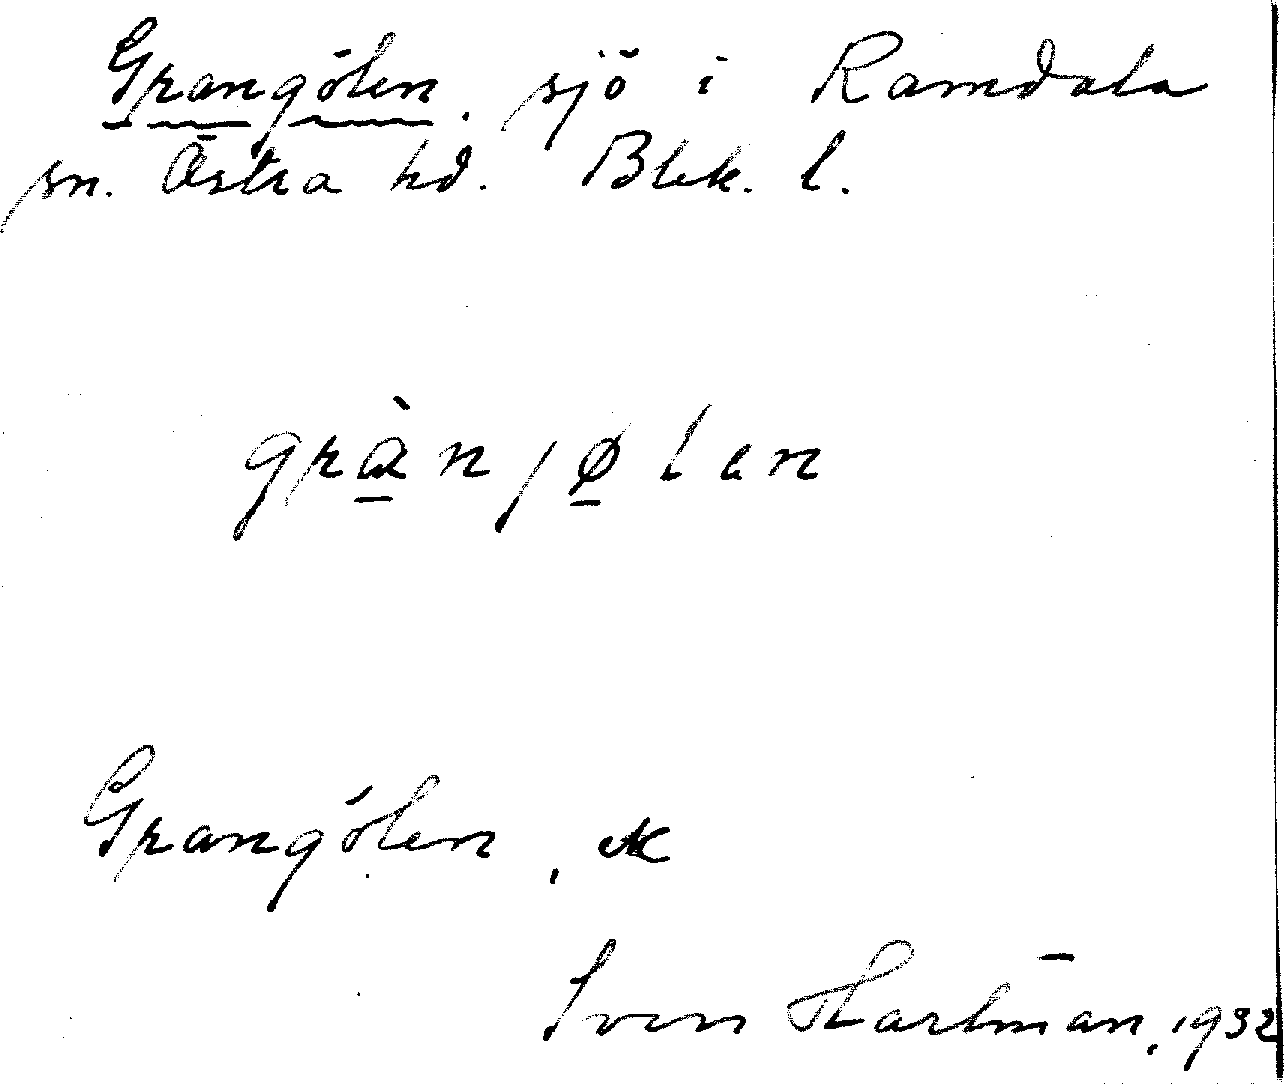 Grangölen. sjö i Ramdala
sn. Östra hd. Blek. l.
grànjølen
Grangölen,
Sven Hartman, 1932